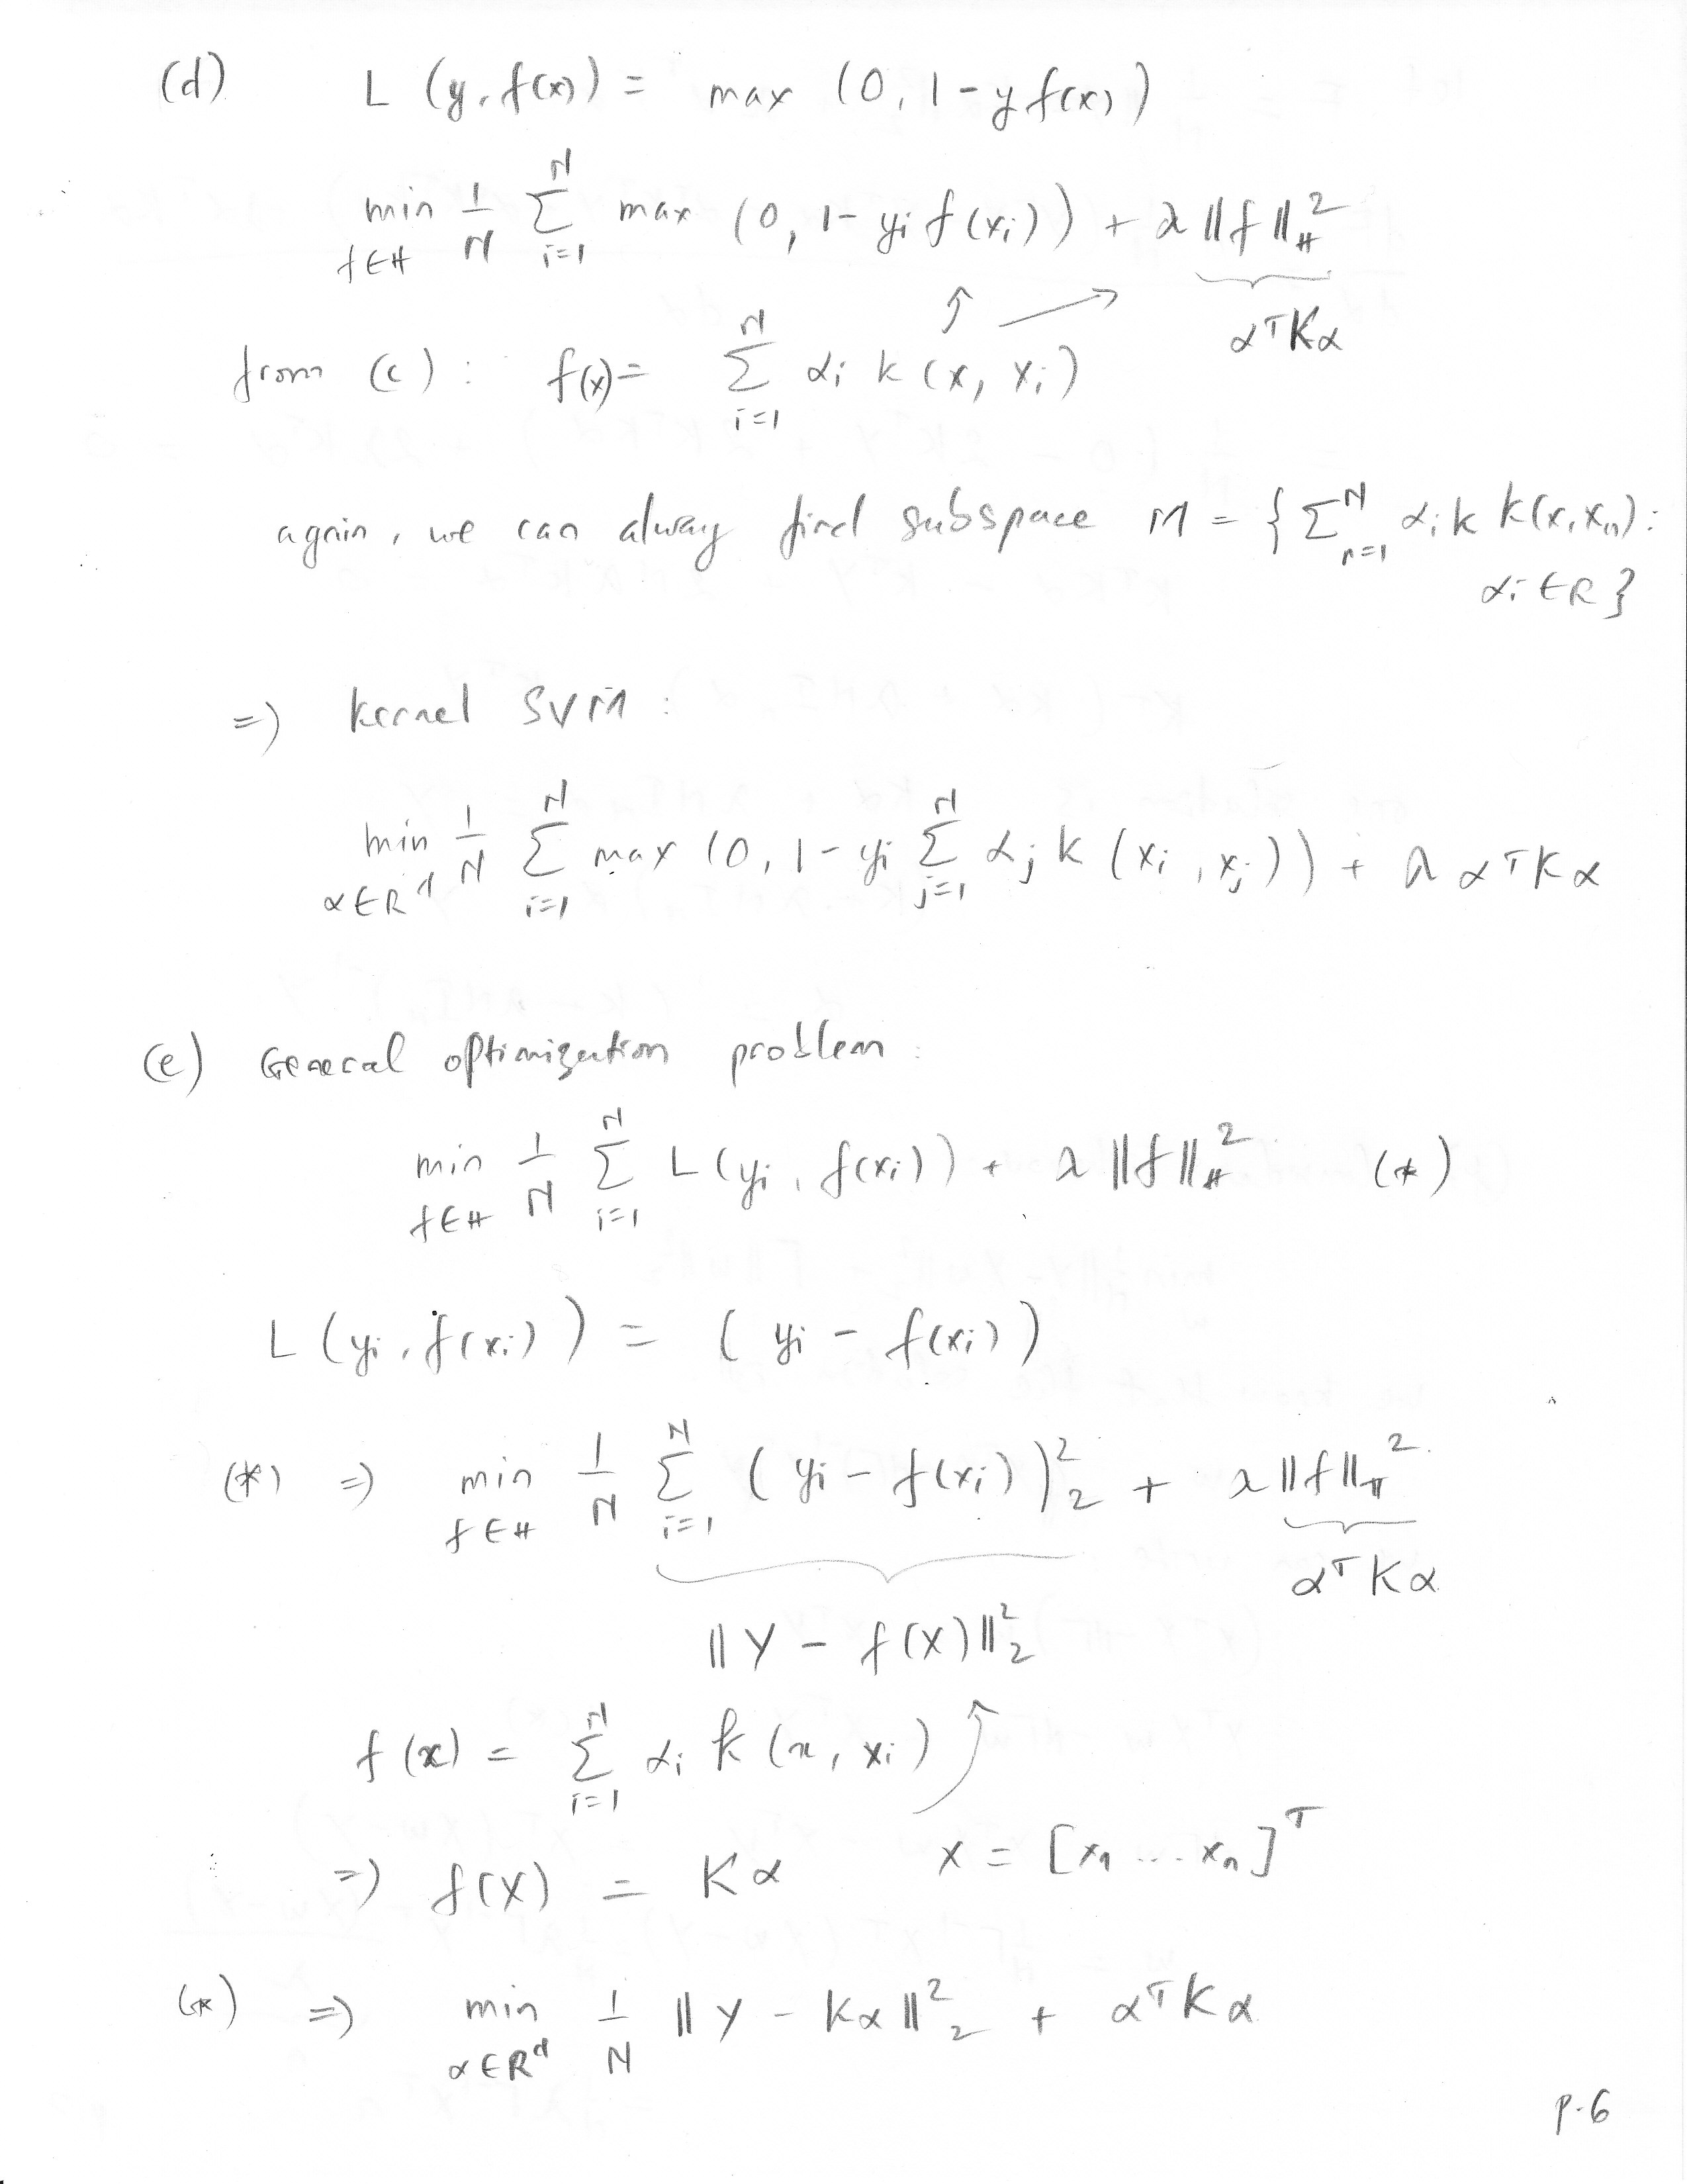 (d) L (y, f(x)) = max (0, 1 - y f(x))
min f∈H 1/N Σ_{i=1}^{N} max (0, 1 - yi f(xi)) + λ ||f||_H^2
α^T K α
from (c) : f(x) = Σ_{i=1}^{N} αi k (x, xi)
again, we can alway find subspace M = { Σ_{n=1}^{N} αi k k(x, xn) :
αi ∈ R }
=) kernel SVM :
min α∈R^d 1/N Σ_{i=1}^{N} max (0, 1 - yi Σ_{j=1}^{N} αj k (xi, xj)) + λ α^T K α
(e) General optimization problem :
min f∈H 1/N Σ_{i=1}^{N} L(yi, f(xi)) + λ ||f||_H^2 (*)
L (yi, f(xi)) = ( yi - f(xi))
(*) =) min f∈H 1/N Σ_{i=1}^{N} ( yi - f(xi) )_2^2 + λ ||f||_H^2
α^T K α
|| Y - f(X) ||_2^2
f (x) = Σ_{i=1}^{N} αi k (x, xi)
=) f(X) = K α X = [x1 ... xn]^T
(*) =) min α∈R^d 1/N || Y - Kα ||_2^2 + α^T K α
p.6